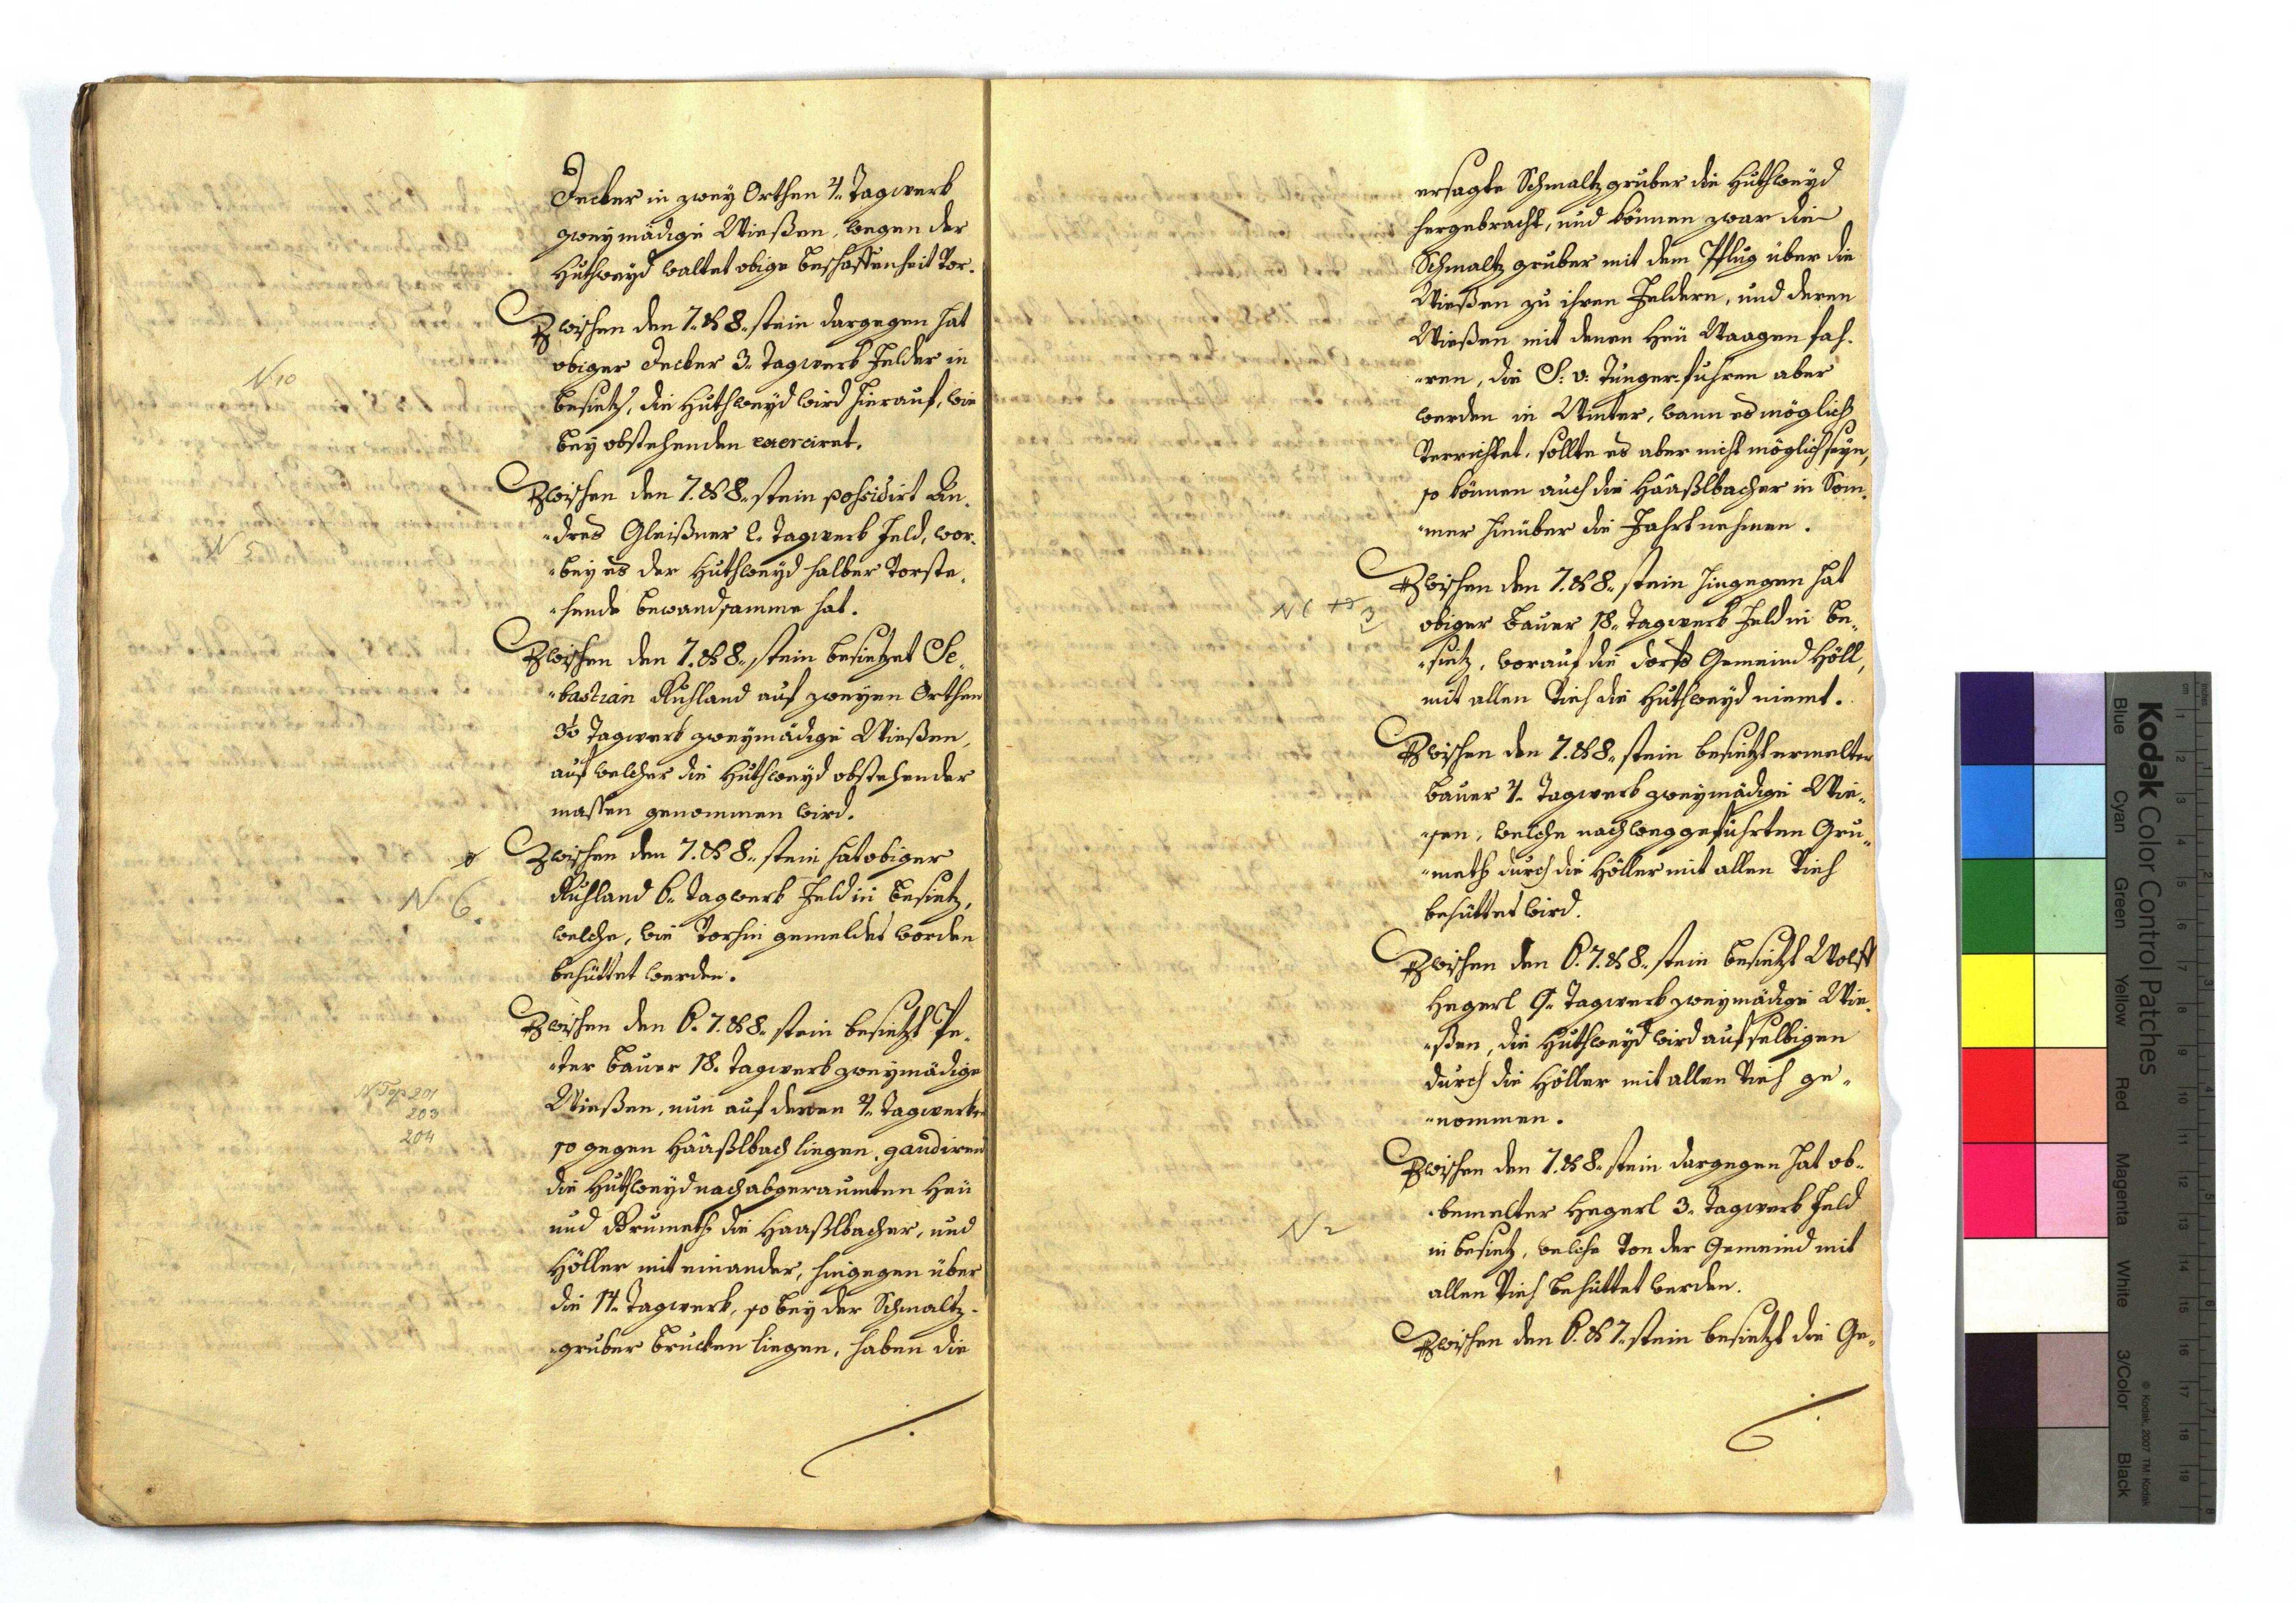 Decker in zwey Orthen 4. Tagwerk
zweymädige Wießen, wegen der
Huthweyd waltet obige beschaffenheit vor.
Zwischen den 7. & 8. stein dargegen hat
obiger Decker 3. Tagwerk Felder in
besietz, die Huthweyd wird hierauf, wie
bey obstehenden exerciret.
N 10
Zwischen den 7. & 8. stein possidirt An-
-dres Gleißner 2. Tagwerk Feld, wor-
-bey es der Huthweyd halber vorste-
-hende bewandsamme hat.
N 5
Zwischen den 7. & 8. stein besietzet Se-
-bastian Ruhland auf zweyen Orthen
3½ Tagwerk zweymädige Wießen,
auf welcher die Huthweyd obstehender
massen genommen wird.
Zwischen den 7. & 8. stein hat obiger
Ruhland 6. Tagwerk Feld in besietz,
welche, wie vorhin gemeldet worden
behüttet werden.
N 6.
Zwischen den 6. 7. & 8. stein besietzt Pe-
-ter Bauer 18. Tagwerk zweymädige
Wießen, nun auf deren 4. Tagwerke
so gegen Haaßlbach liegen, gaudiren
die Huthweyd nach abgeraumten Heu
und Grumeth die Haaßlbacher, und
Höller mit einander, hingegen über
die 14. Tagwerk, so bey der Schmaltz-
-gruber brucken liegen, haben die
N Top 201
203
204
ersagte Schmaltzgruber die Huthweyd
hergebracht, und können zwar die
Schmaltzgruber mit dem Pflug über die
Wießen zu ihren Feldern, und deren
Wießen mit denen Heu Waagen fah-
-ren, die S: v: Tunger fuhren aber
werden in Winter, wann es möglich
verrichtet, sollte es aber nicht möglich seyn,
so können auch die Haaßlbacher in Som-
-mer hinüber die Fahrt nehmen.
Zwischen den 7. & 8. stein hingegen hat
obiger Bauer 18. Tagwerk Feld in be-
-sietz, worauf die dorfs Gemeind Höll,
mit allen Vieh die Huthweyd niemt.
3
Zwischen den 7. & 8. stein besietzt ermelter
Bauer 4. Tagwerk zweymädige Wie-
-sen, welche nach weggeführten Gru-
-meth durch die Höller mit allen Vieh
behüttet wird.
Zwischen den 6. 7. & 8. stein besietzt Wolff
Hegerl 9. Tagwerk zweymädige Wie-
-ßen, die Huthweyd wird auf selbigen
durch die Höller mit allen Vieh ge-
-nommen.
Zwischen den 7. & 8. stein dargegen hat ob-
-bemelter Hegerl 3. Tagwerk Feld
in besietz, welche von der Gemeind mit
allen Vieh behüttet werden.
N 2
Zwischen den 6. & 7. stein besietzt die Ge-
Kodak Color Control Patches
Blue Cyan Green Yellow Red Magenta White 3/Color Black
© Kodak, 2007 TM: Kodak